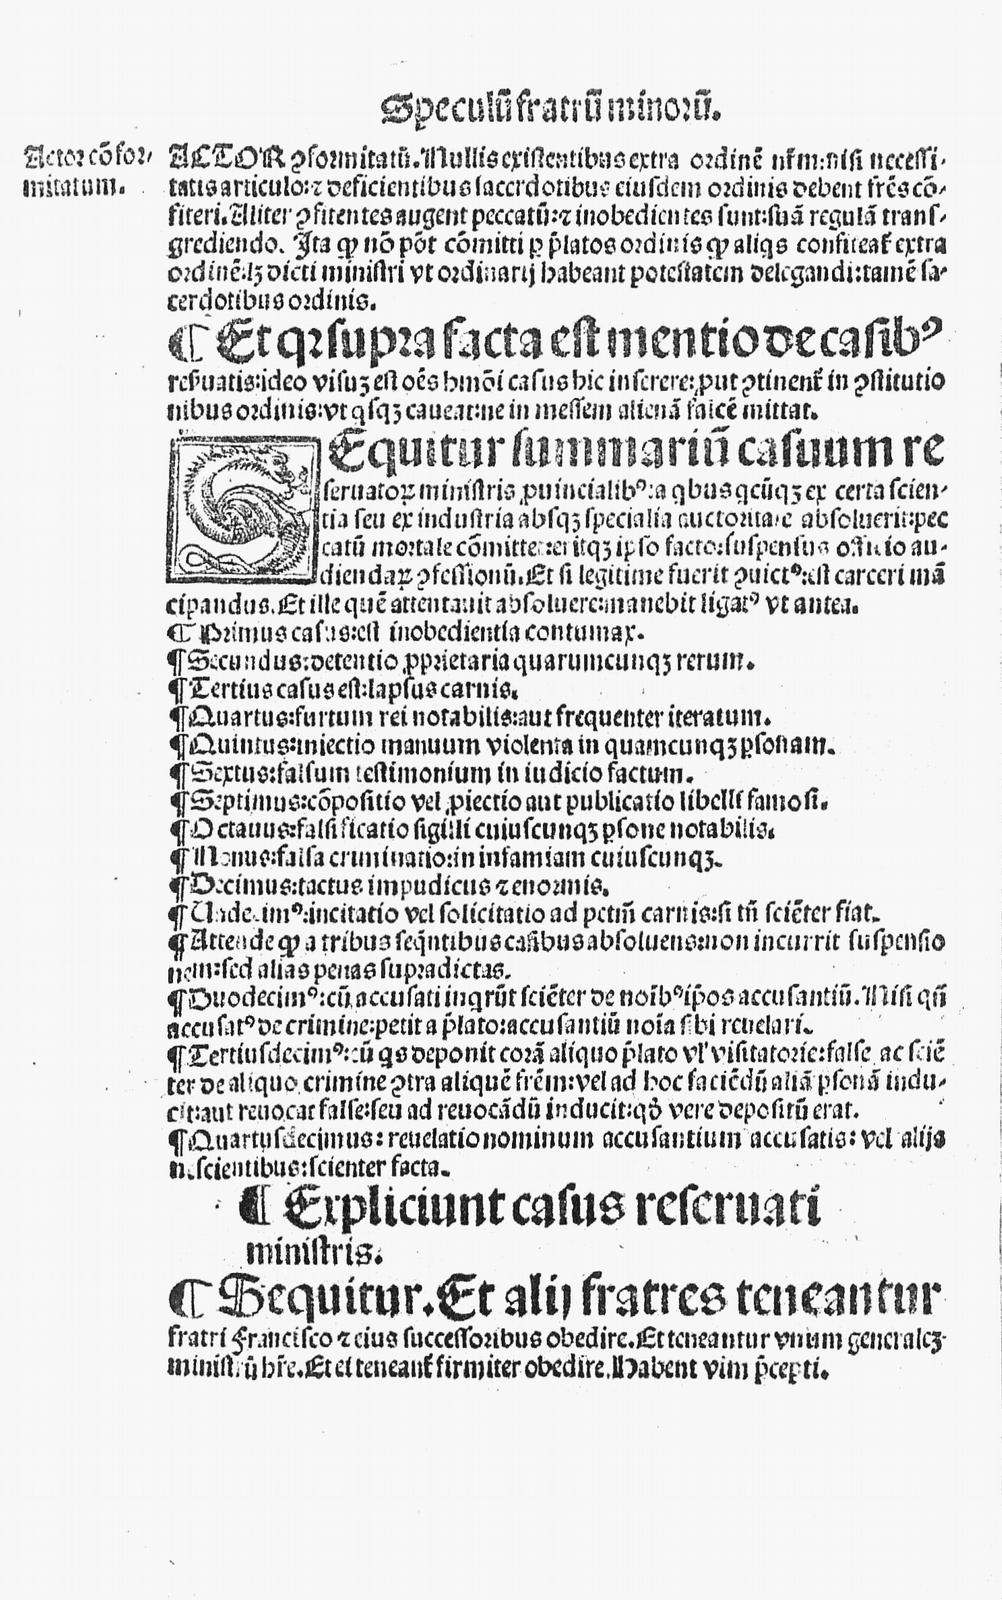 Speculū fratrū minorū.
Actor cōfor-
mitatum.
ACTOR ꝯformitatū. Nullis existentibus extra ordinē nr̄m: nisi necessi-
tatis articulo: ⁊ deficientibus sacerdotibus eiusdem ordinis debent fr̄es cō-
fiteri. Aliter ꝯfitentes augent peccatū: ⁊ inobedientes sunt: suā regulā trans-
grediendo. Ita ꝙ nō pōt cōmitti ꝑ p̄latos ordinis ꝙ aliqs confiteat̄ extra
ordinē: lꝫ dicti ministri vt ordinarij habeant potestatem delegandi: tamē sa-
cerdotibus ordinis.
¶ Et qꝛ supra facta est mentio de casibꝰ
reẜuatis: ideo visuꝫ est oēs hmōi casus hic inserere: ꝓut ꝯtinent̄ in ꝯstitutio
nibus ordinis: vt qsqꝫ caueat: ne in messem alienā falcē mittat.
SEquitur summariū casuum re
seruatoꝝ ministris ꝓuincialibꝰ: a qbus qcūqꝫ ex certa scien-
tia seu ex industria absqꝫ specialia auctoritate absoluerit: pec
catū mortale cōmittet: eritqꝫ ipso facto: suspensus officio au-
diendaꝝ ꝯfessionū. Et si legitime fuerit ꝯuictꝰ: est carceri mā
cipandus. Et ille quē attentauit absoluere: manebit ligatꝰ vt antea.
¶ Primus casus: est inobedientia contumax.
¶ Secundus: detentio ꝓprietaria quarumcunqꝫ rerum.
¶ Tertius casus est: lapsus carnis.
¶ Quartus: furtum rei notabilis: aut frequenter iteratum.
¶ Quintus: iniectio manuum violenta in quamcunqꝫ ꝑsonam.
¶ Sextus: falsum testimonium in iudicio factum.
¶ Septimus: cōpositio vel ꝓiectio aut publicatio libelli famosi.
¶ Octauus: falsificatio sigilli cuiuscunqꝫ ꝑsone notabilis.
¶ Nonus: falsa criminatio: in infamiam cuiuscunqꝫ.
¶ Decimus: tactus impudicus ⁊ enormis.
¶ Undecimꝰ: incitatio vel solicitatio ad pctm̄ carnis: si tn̄ sciēter fiat.
¶ Attende ꝙ a tribus seq̄ntibus casibus absoluens: non incurrit suspensio
nem: sed alias penas supradictas.
¶ Duodecimꝰ: cū accusati inqrūt sciēter de noīibꝰ ip̄os accusantiū. Nisi qn̄
accusatꝰ de crimine: petit a p̄lato: accusantiū noīa sibi reuelari.
¶ Tertiusdecimꝰ: cū qs deponit corā aliquo p̄lato vl' visitatorie: false ac sciē
ter de aliquo crimine ꝯtra aliquē fr̄em: vel ad hoc faciēdū aliā ꝑsonā indu-
cit: aut reuocat false: seu ad reuocādū inducit: qđ vere depositū erat.
¶ Quartusdecimus: reuelatio nominum accusantium accusatis: vel alijs
nescientibus: scienter facta.
¶ Expliciunt casus reseruati
ministris.
¶ Sequitur. Et alij fratres teneantur
fratri Francisco ⁊ eius successoribus obedire. Et teneantur vnum generaleꝫ
ministrū hr̄e. Et ei teneant̄ firmiter obedire. Habent vim p̄cepti.